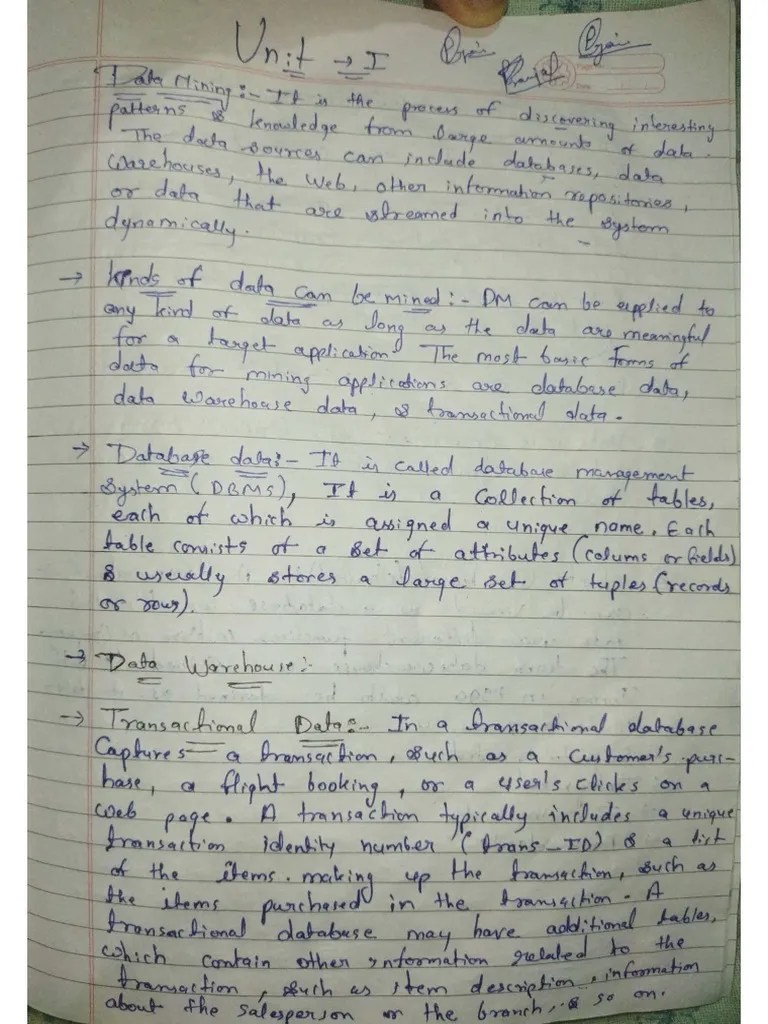 Unit → I
Data Mining:- It is the process of discovering interesting
patterns & knowledge from large amounts of data.
The data sources can include databases, data
Warehouses, the web, other information repositories,
or data that are streamed into the system
dynamically.
→ Kinds of data can be mined:- DM can be applied to
any kind of data as long as the data are meaningful
for a target application. The most basic forms of
data for mining applications are database data,
data warehouse data, & transactional data.
→ Database data:- It is called database management
System (DBMS), It is a Collection of tables,
each of which is assigned a unique name. Each
table consists of a set of attributes (colums or fields)
& usually stores a large set of tuples (records
or rows).
→ Data Warehouse:-
→ Transactional Data:- In a transactional database
Captures a transaction, such as a customer's purc-
hase, a flight booking, or a user's clicks on a
web page. A transaction typically includes a unique
transaction identity number (trans_ID) & a list
of the items making up the transaction, such as
the items purchased in the transaction. A
transactional database may have additional tables,
which contain other information related to the
transaction, such as item description, information
about the salesperson or the branch, & so on.